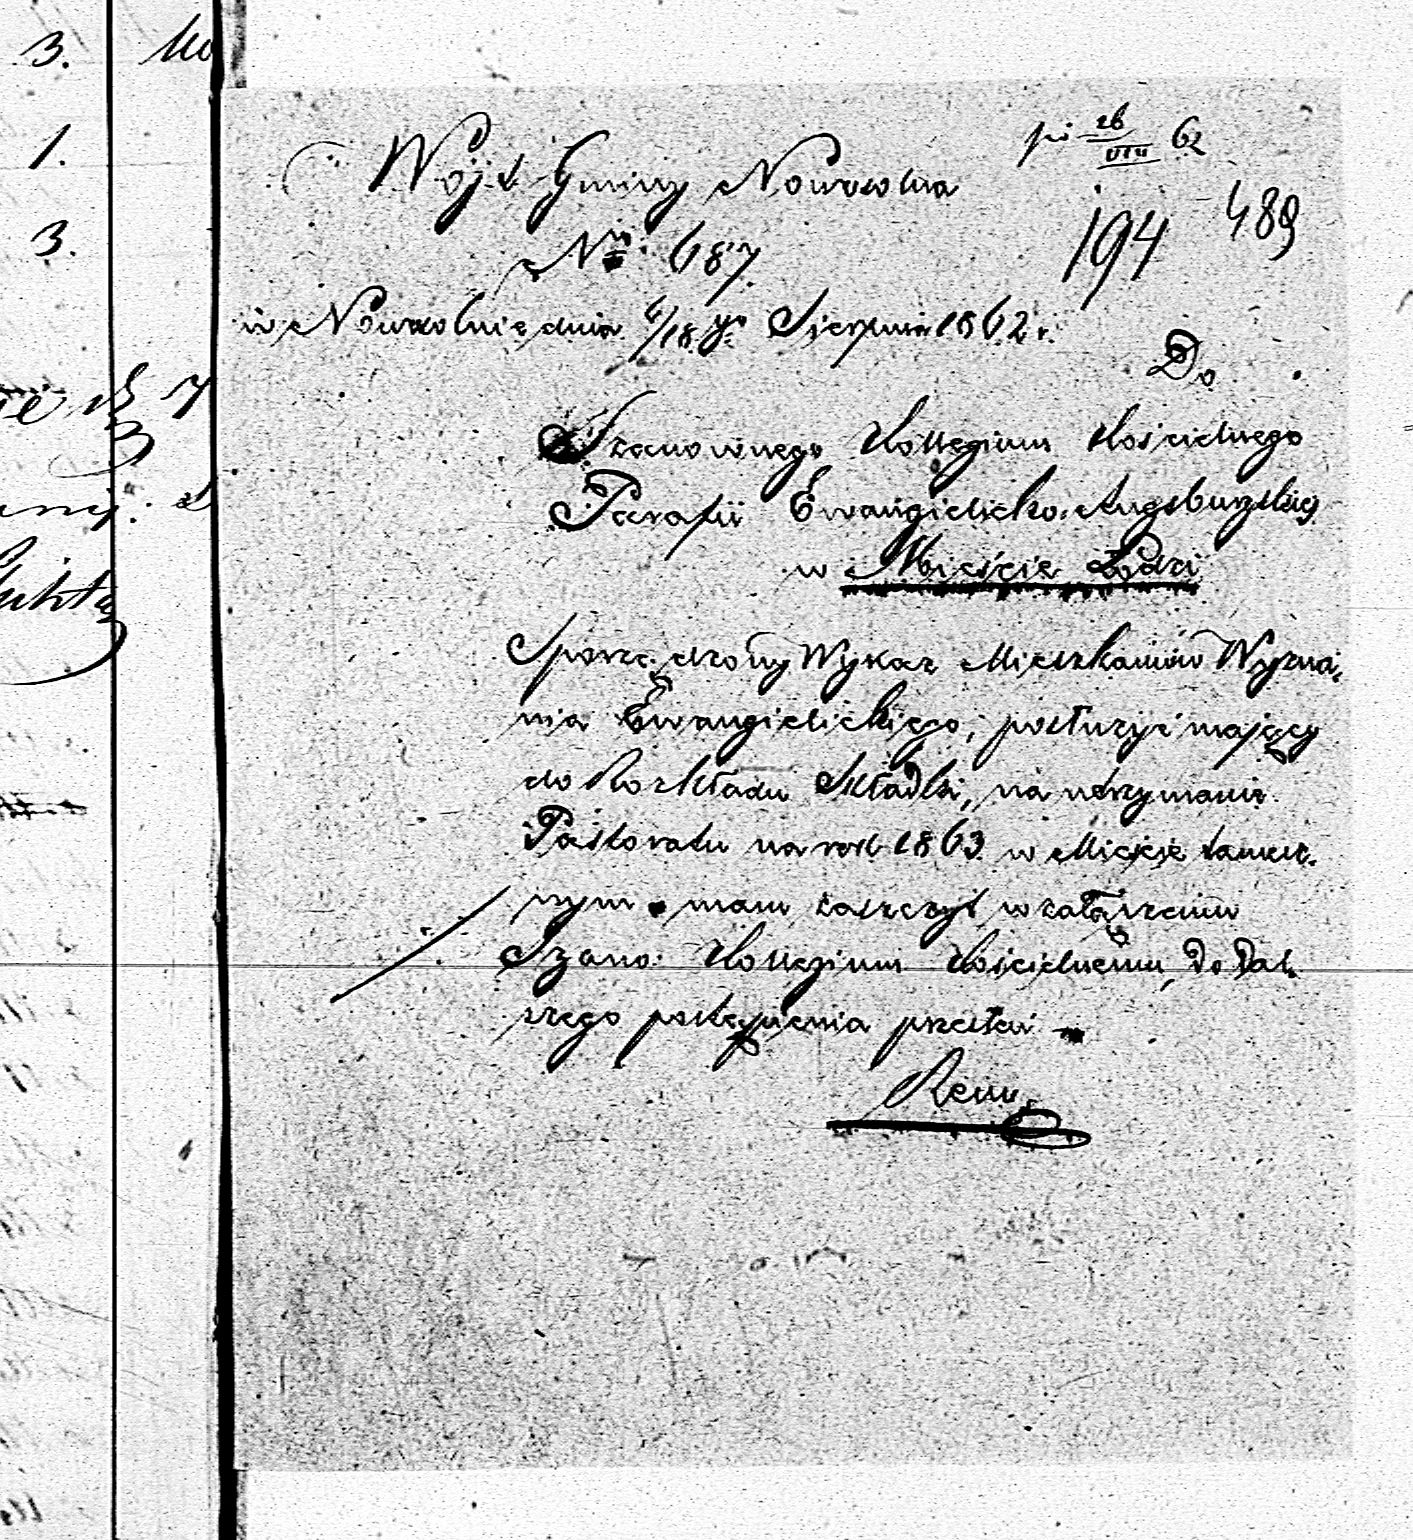 3.
1.
3.
7
pr 26/VIII 62
Wójt Gminy Nowosolna
194 489
No 687.
w Nowosolnie dnia 6/18go Sierpnia 1862 r.
Do
Szanownego Kollegium Kościelnego
Parafii Ewangielicko-Augsburgskiej
w Mieście Łodzi
Sporządzony Wykaz Mieszkańców Wyzna-
nia Ewangielickiego, posłużyć mający
do Rozkładu Składki, na utrzymanie
Pastoratu na rok 1863 w Mieście tamte-
mam zaszczyt w załączeniu
Szano: Kollegium Kościelnemu, do dal-
szego postąpienia przesłać